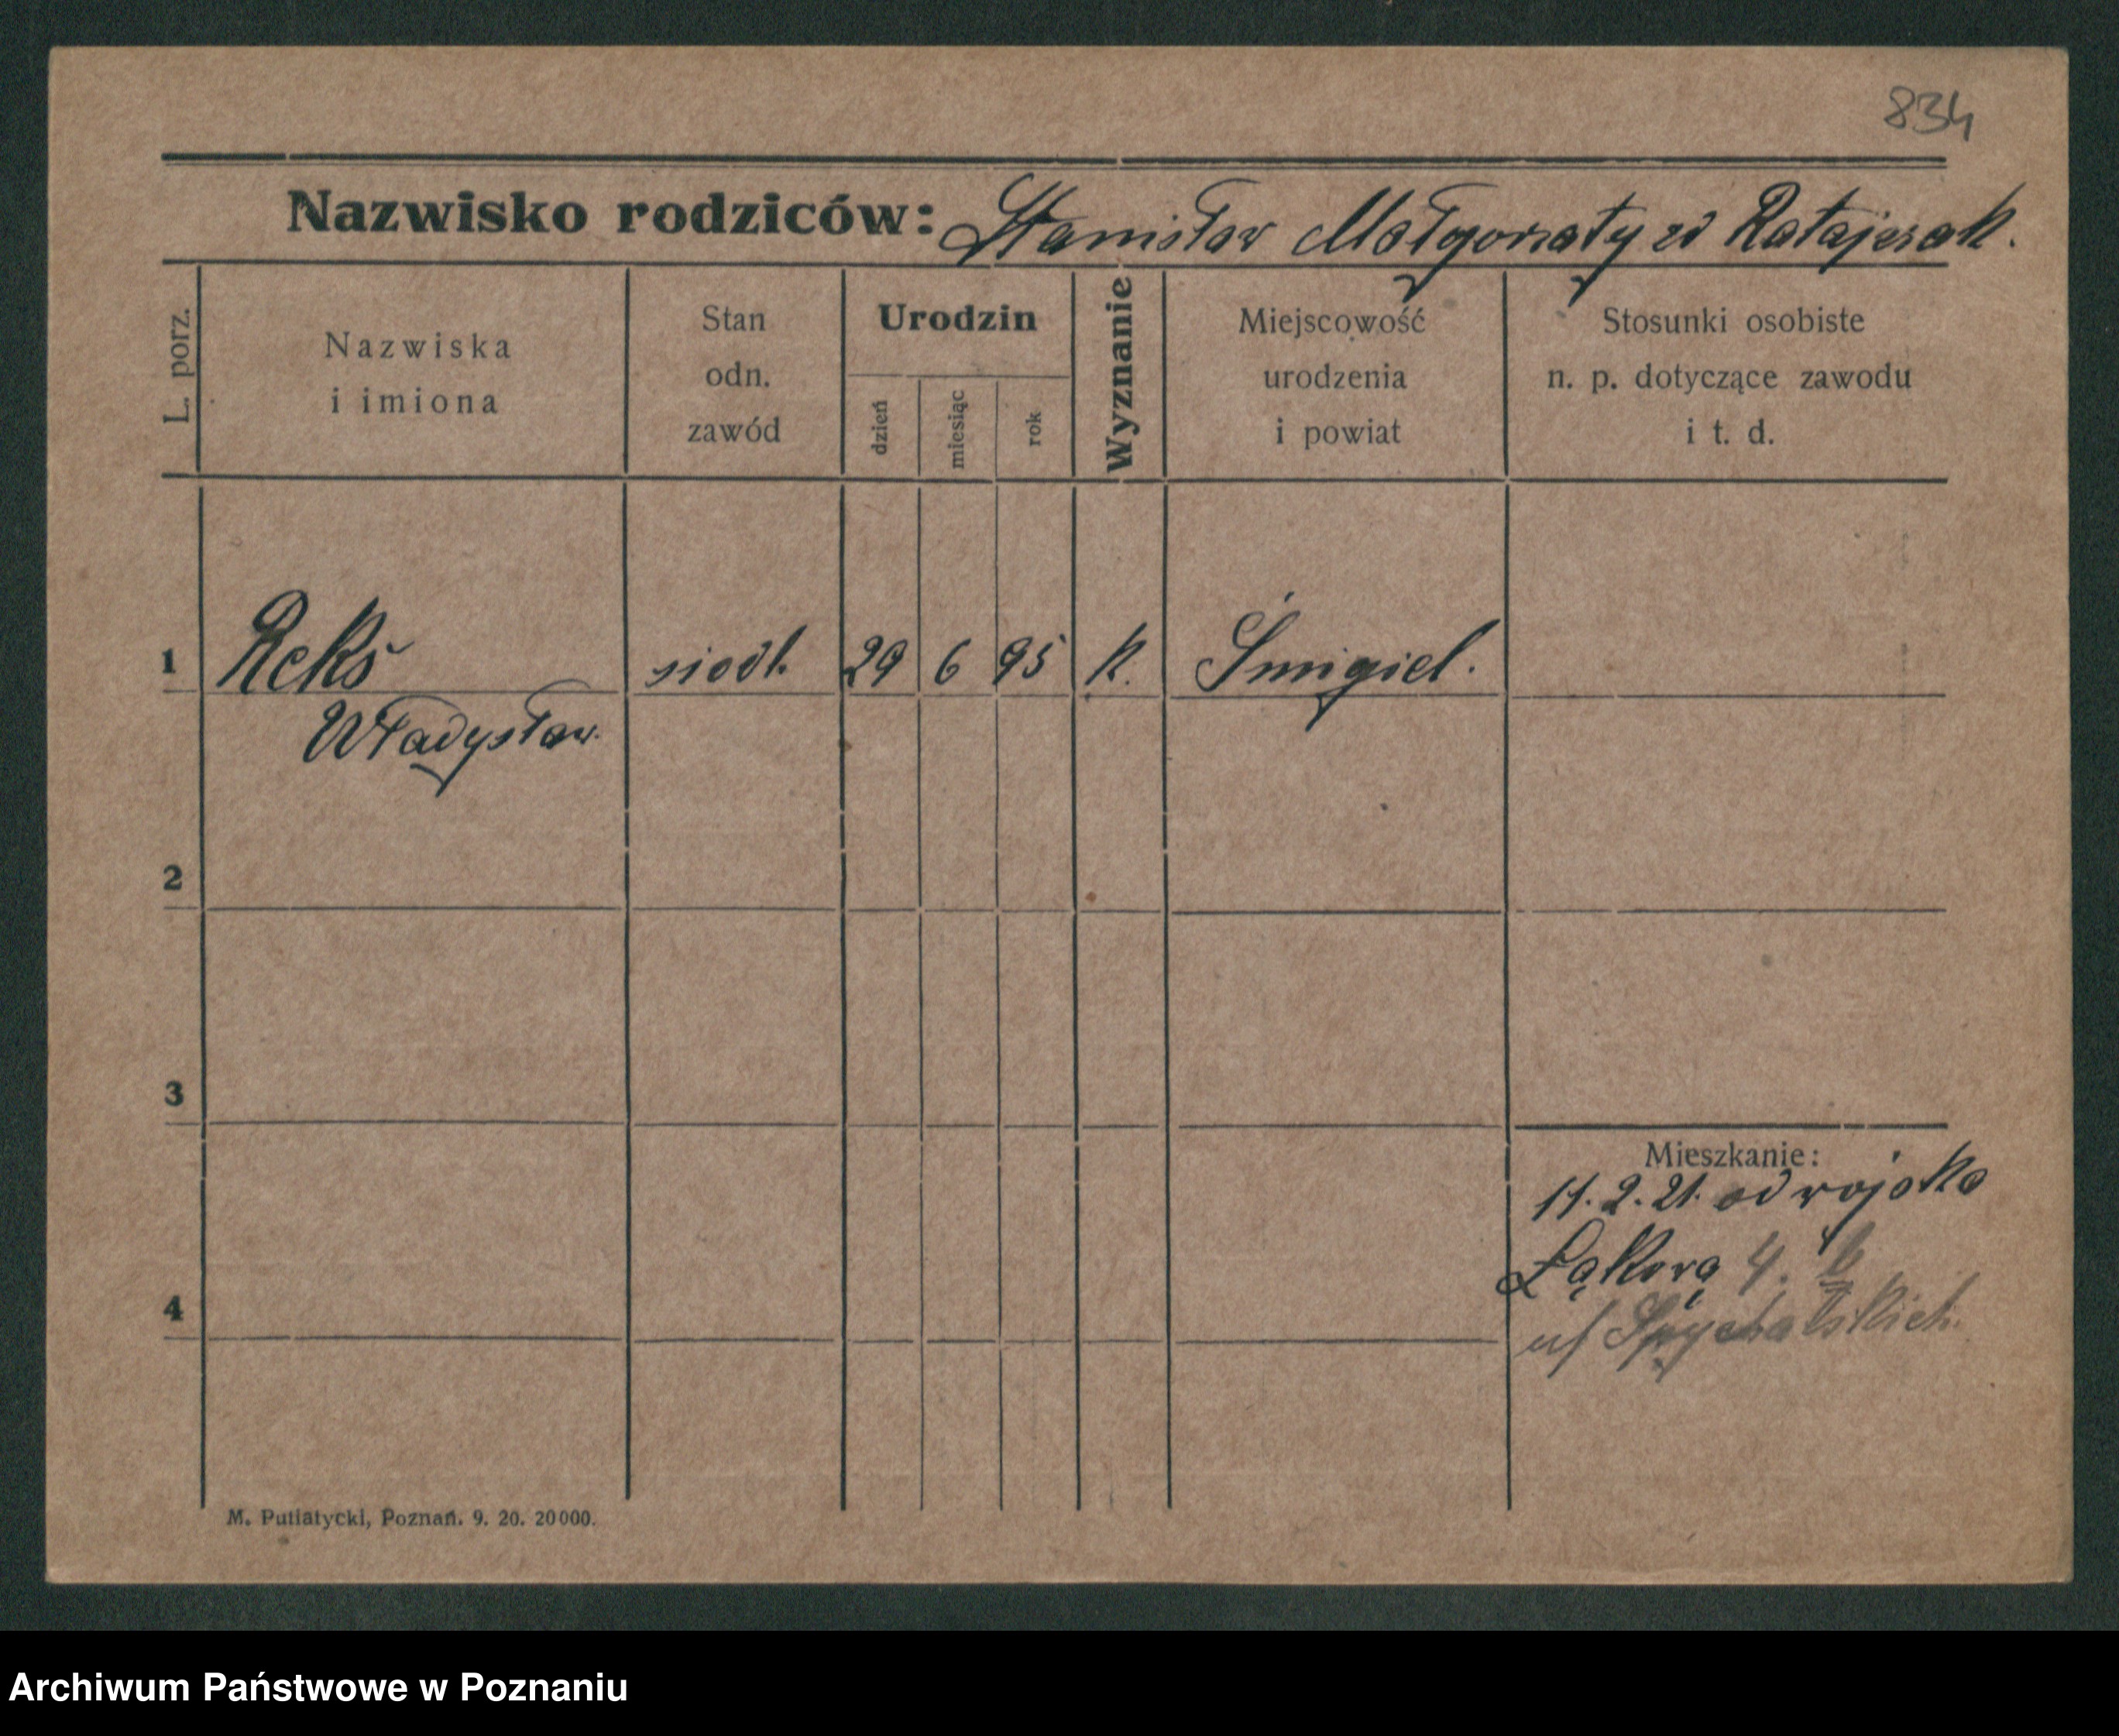 834
Nazwisko rodziców: Stanisław Małgorzaty zd Ratajczak.
L. porz.
Nazwiska
i imiona
Stan
odn.
zawód
Urodzin
dzień
miesiąc
rok
Wyznanie
Miejscowość
urodzenia
i powiat
Stosunki osobiste
n. p. dotyczące zawodu
i t. d.
1 Reks siodl. 29 6 95 k. Śmigiel.
Władysław.
2
3
4
Mieszkanie:
11. 2. 21. od wojska
Łąkova 4. b
u/ Spychalskich.
M. Putiatycki, Poznań. 9. 20. 20000.
Archiwum Państwowe w Poznaniu